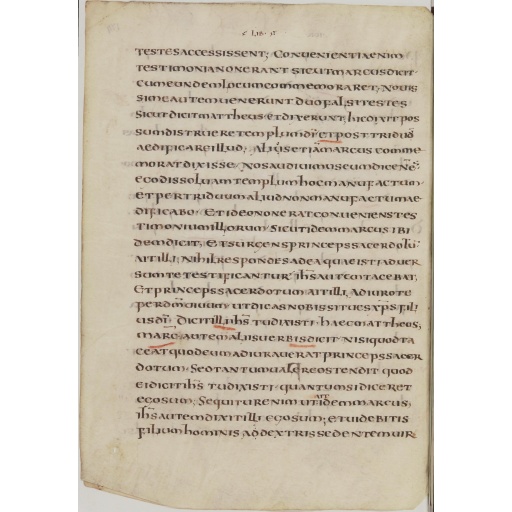 LIB·
TESTES ACCESSISSENT; CONUENIENTIA ENIM
TESTIMONIA NON ERANT SICUT MARCUS DICIT
CUM EUNDEM LOCUM COMMEMORARET, NOUIS
SIME AUTEM UENERUNT DUO FALSI TESTES
SICUT DICIT MATTHEUS ET DIXERUNT; HIC DIXIT POS
SUM DISTRUERE TEMPLUM DĪ ET POST TRIDUŪ
AEDIFICARE ILLUD; ALIUS ETIĀ MARCUS COMME
MORAT DIXISSE NOS AUDIUIMUS EUM DICENTĒ
EGO DISSOLUAM TEMPLUM HOC MANU FACTUM
ET PER TRIDUUM ALIUD NON MANU FACTUM AE
DIFICABO ET IDEO NON ERAT CONUENIENS TES
TIMONIUM ILLORUM SICUT IDEM MARCUS IBI
DEM DICIT, ET SURGENS PRINCEPS SACERDOTŪ
AIT ILLI, NIHIL RESPONDES AD EA QUAE ISTI ADUER
SUM TE TESTIFICANTUR IHS̄ AUTEM TACEBAT,
ET PRINCEPS SACERDOTUM AIT ILLI, ADIURO TE
PER DM̄ UIUUM UT DICAS NOBIS SI TU ES XP̄S FILI
US DĪ, DICIT ILLI IHS̄ TU DIXISTI HAEC MATTHEUS,
MARC AUTEM ALIIS UERBIS DICIT NISI QUOD TA
CEAT QUOD EUM ADIURAUERAT PRINCEPS SACER
DOTUM SED TANTUM UALERE OSTENDIT QUOD
EI DICIT IHS̄ TU DIXISTI QUANTUM SI DICERET
EGO SUM; SEQUITUR ENIM UT AIT IDEM MARCUS;
IHS̄ AUTEM DIXIT ILLI EGO SUM; ET UIDEBITIS
FILIUM HOMINIS A DEXTRIS SEDENTEM UIR